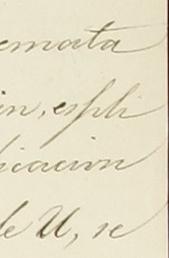 emata
in, espli
icacion
de U, se